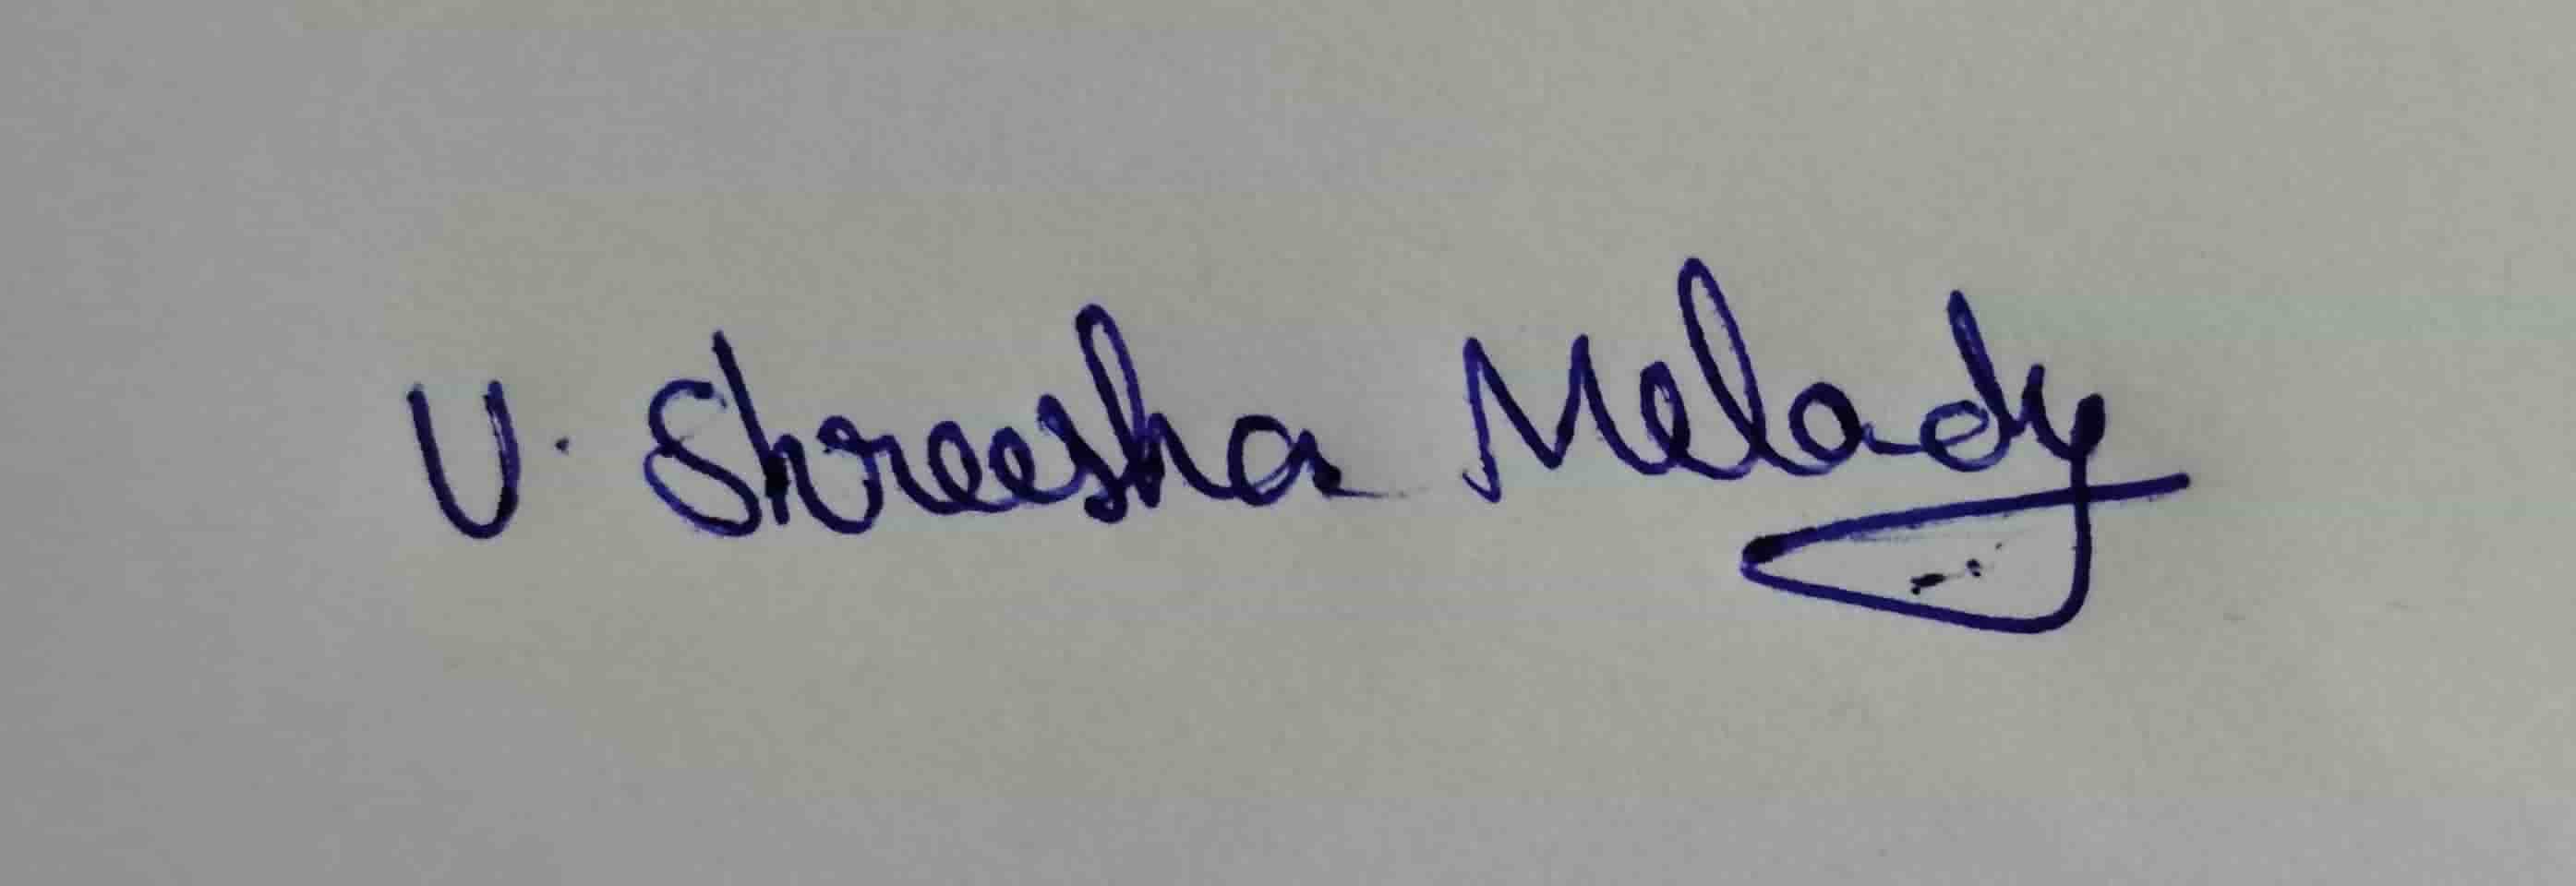 U. Shreesha Melady